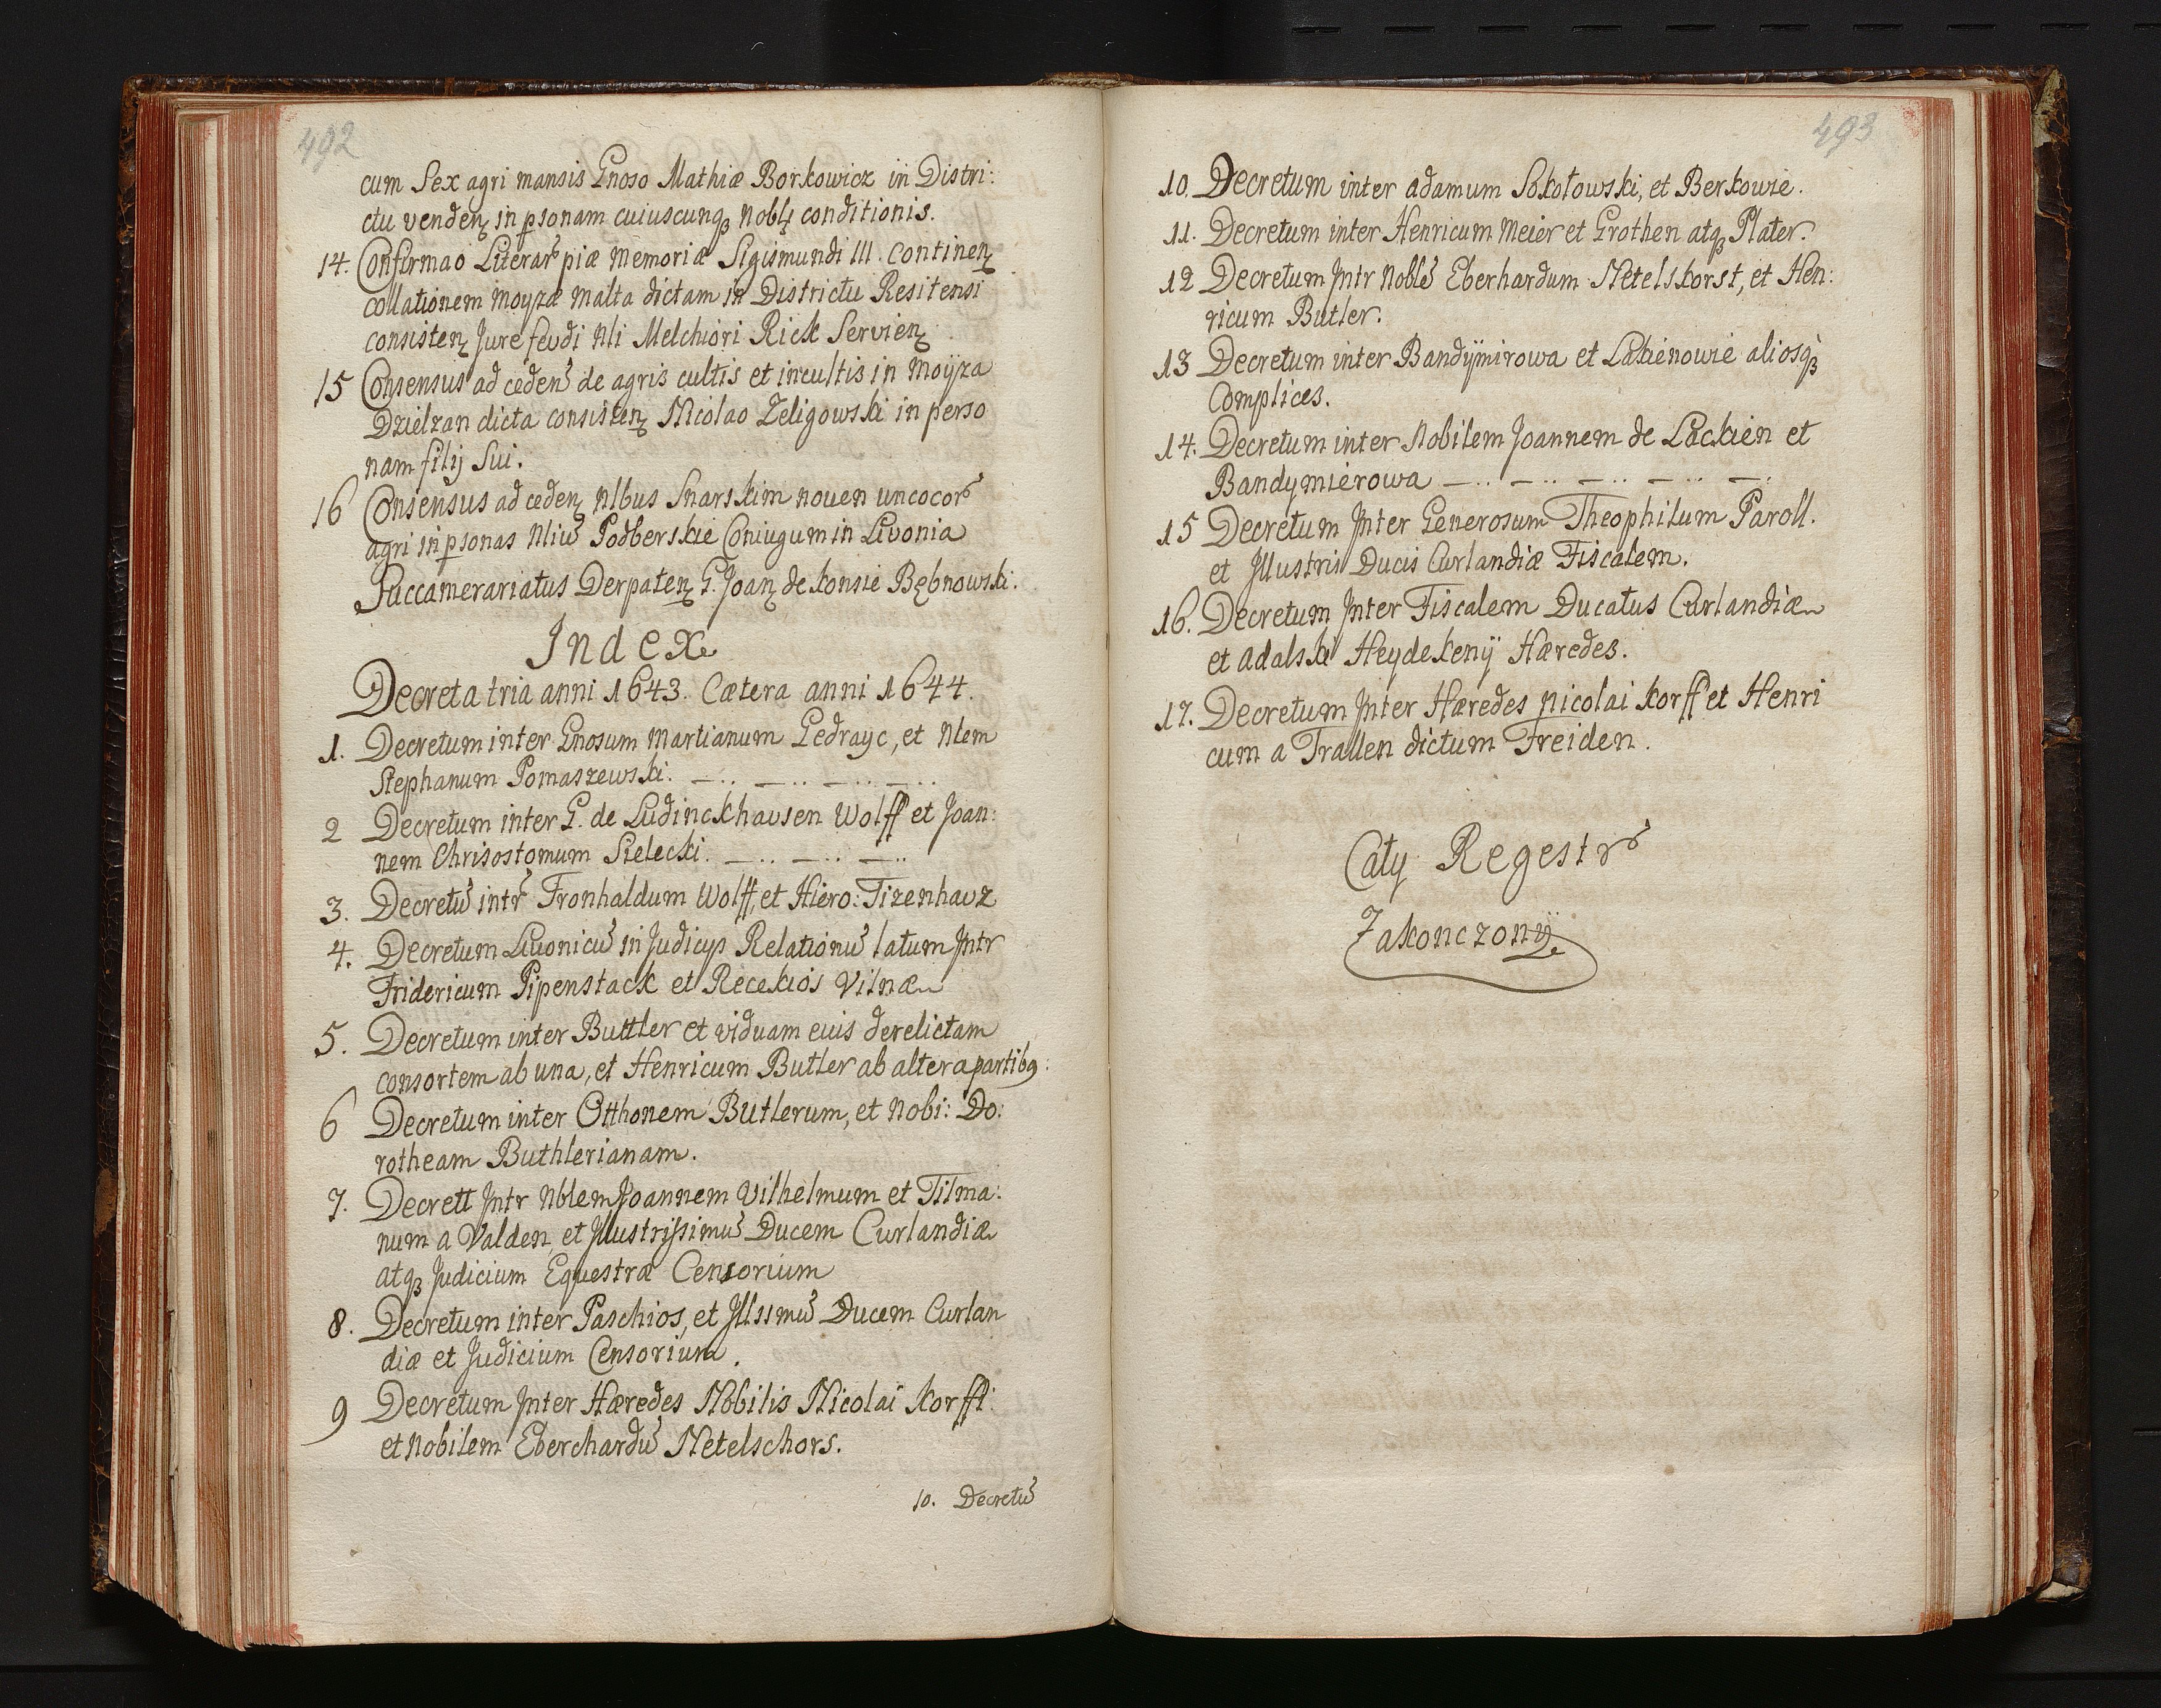 492
cum Sex agri mansis Gnoso Mathiæ Borkowicz in Distri:
ctu venden in psonam cuiuscunqꝫ Nobli conditionis.
14. Confirmao Literar piæ memoriæ Sigismundi III. continen
collationem moyzæ malta dictam in Districtu Resitensi
consisten Jure feudi Nli Melchiori Rick Servien
15 Consensus ad ceden de agris cultis et incultis in Moÿza
Dzielzan dicta consisten Nicolao Zeligowski in perso
nam filij Sui.
16 Consensus ad ceden Nlbus Snarskim noven uncocor
agri in psonas Nliu Podberskie Coniugum in Livonia
Succamerariatus Derpaten G. Joan de Konsie Bębnowski.
Index
Decreta tria anni 1643. Cætera anni 1644.
1. Decretum inter Gnosum Martianum Gedrayc, et Nlem
Stephanum Pomaszewski. —.. —.. —.. —..
2 Decretum inter G. de Ludinckhausen Wolff et Joan:
nem Chrisostomum Sielecki. —.. —.. —..
3. Decretū intr Fronhaldum Wolff, et Hiero: Tizenhauz
4. Decretum Livonicū in Judicys Relationū latum Jntr
Fridericum Pipenstack et Recekios Vilnæ
5. Decretum inter Buttler et viduam euis derelictam
consortem ab una, et Henricum Butler ab altera partibꝯ:
6 Decretum inter Otthonem Butlerum, et Nobi: Do:
rotheam Buthlerianam.
7. Decrett Jntr Nblem Joannem Vilhelmum et Tilma:
num a Valden, et Jllustrissimū Ducem Curlandiæ
atqꝫ Judicium Equestræ Censorium
8. Decretum inter Paschios, et Jllsimū Ducem Curlan
diæ et Judicium Censorium.
9 Decretum Jnter Hæredes Nobilis Nicolai Korffi:
et Nobilem Eberchardū Netelschors.
10. Decretū
493
10. Decretum inter Adamum Sokołowski, et Berkowie.
11. Decretum inter Henricum Meier et Grothen atqꝫ Plater.
12 Decretum Jntr Noblē Eberhardum Netelskorst, et Hen:
ricum Butler.
13 Decretum inter Bandÿmirowa et Lakienowie aliosqꝫ
Complices.
14. Decretum inter Nobilem Joannem de Lackien et
Bandymierowa —.. —.. —.. —.. —.
15 Decretum Jnter Generosum Theophilum Paroll.
et Jllustris Ducis Curlandiæ Fiscalem.
16. Decretum Jnter Fiscalem Ducatus Curlandiæ
et Adalski Heydekenÿ Hæredes.
17. Decretum Jnter Hæredes Nicolai Korff et Henri
cum a Trallen dictum Freiden.
Cały Regestr
Zakonczonÿ